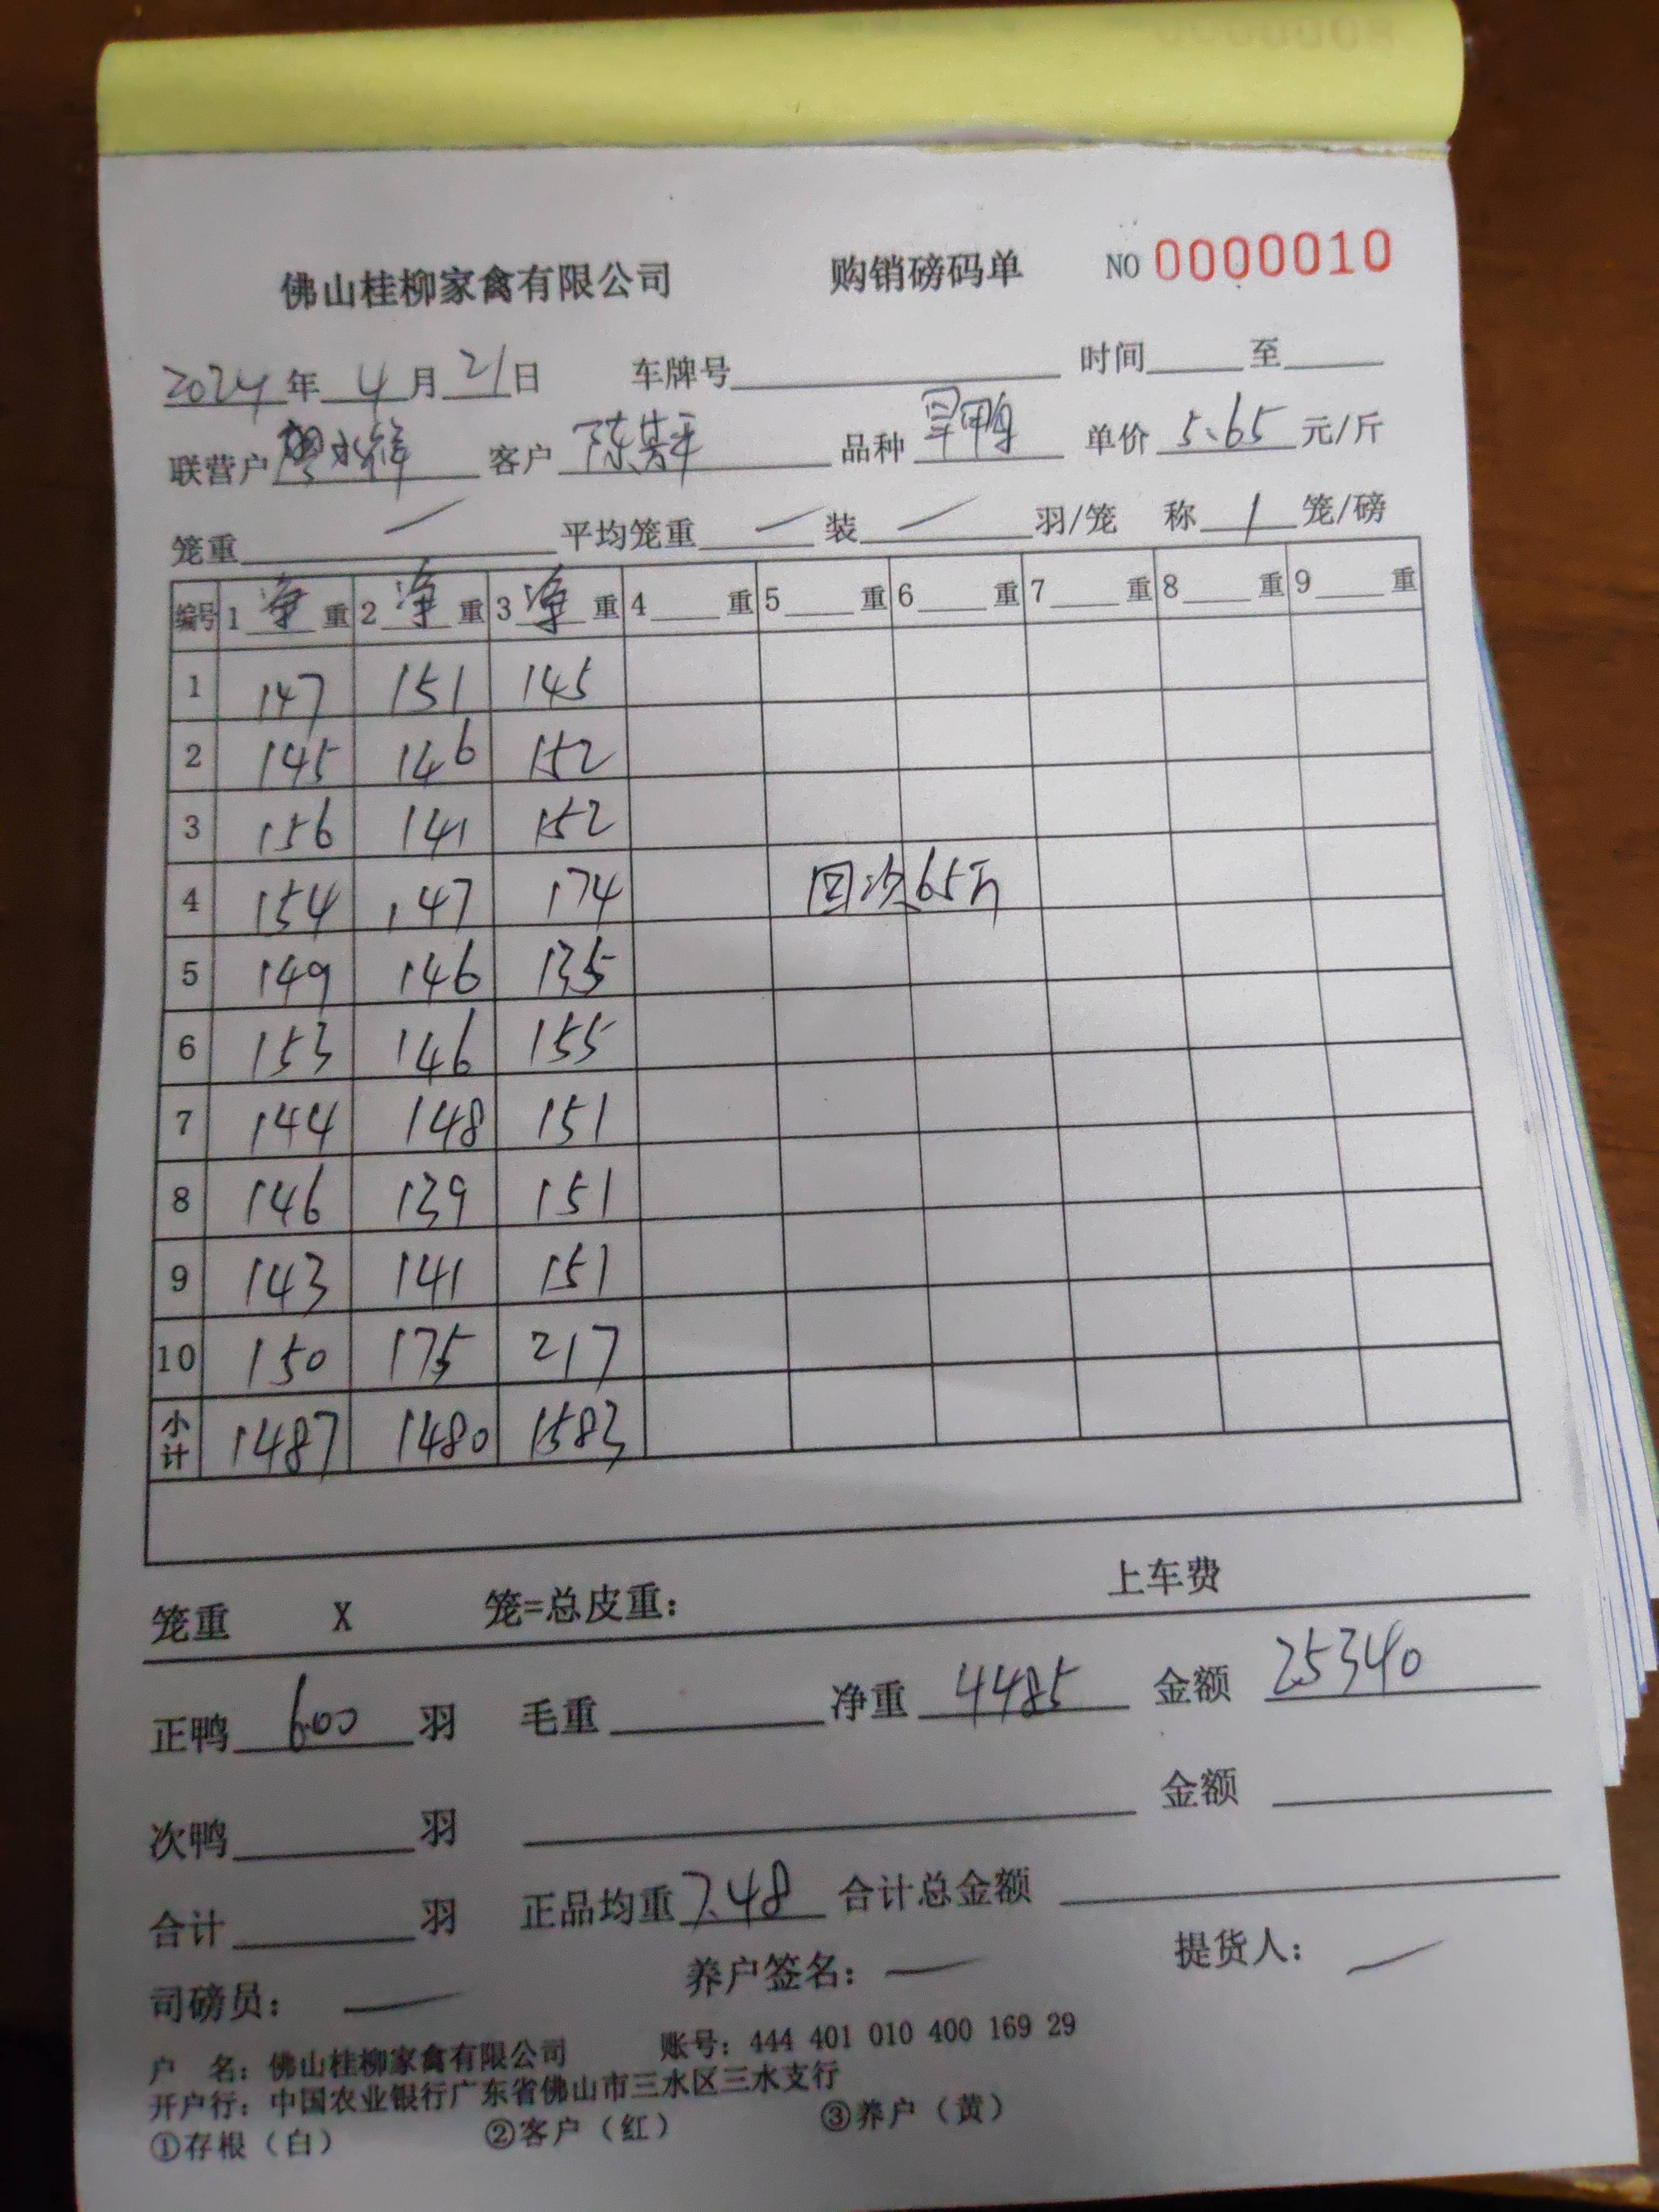 佛山桂柳家禽有限公司 购销磅码单 NO 0000010
2024年 4月 21日 车牌号 时间 至
联营户 廖水祥 客户 陈 平 品种 旱鸭 单价 5.65 元/斤
笼重 / 平均笼重 / 装 / 羽/笼 称 1 笼/磅
编号 1 净 重 2 净 重 3 净 重 4 重 5 重 6 重 7 重 8 重 9 重
1 147 151 145
2 145 146 152
3 156 141 152
4 154 147 174 回次65万
5 149 146 135
6 153 146 155
7 144 148 151
8 146 139 151
9 143 141 151
10 150 175 217
小计 1487 1480 1583
笼重 X 笼=总皮重: 上车费
正鸭 600 羽 毛重 净重 4485 金额 25340
次鸭 羽 金额
合计 羽 正品均重 7.48 合计总金额
司磅员: — 养户签名: — 提货人: —
户 名: 佛山桂柳家禽有限公司 账号: 444 401 010 400 169 29
开户行: 中国农业银行广东省佛山市三水区三水支行
①存根（白） ②客户（红） ③养户（黄）